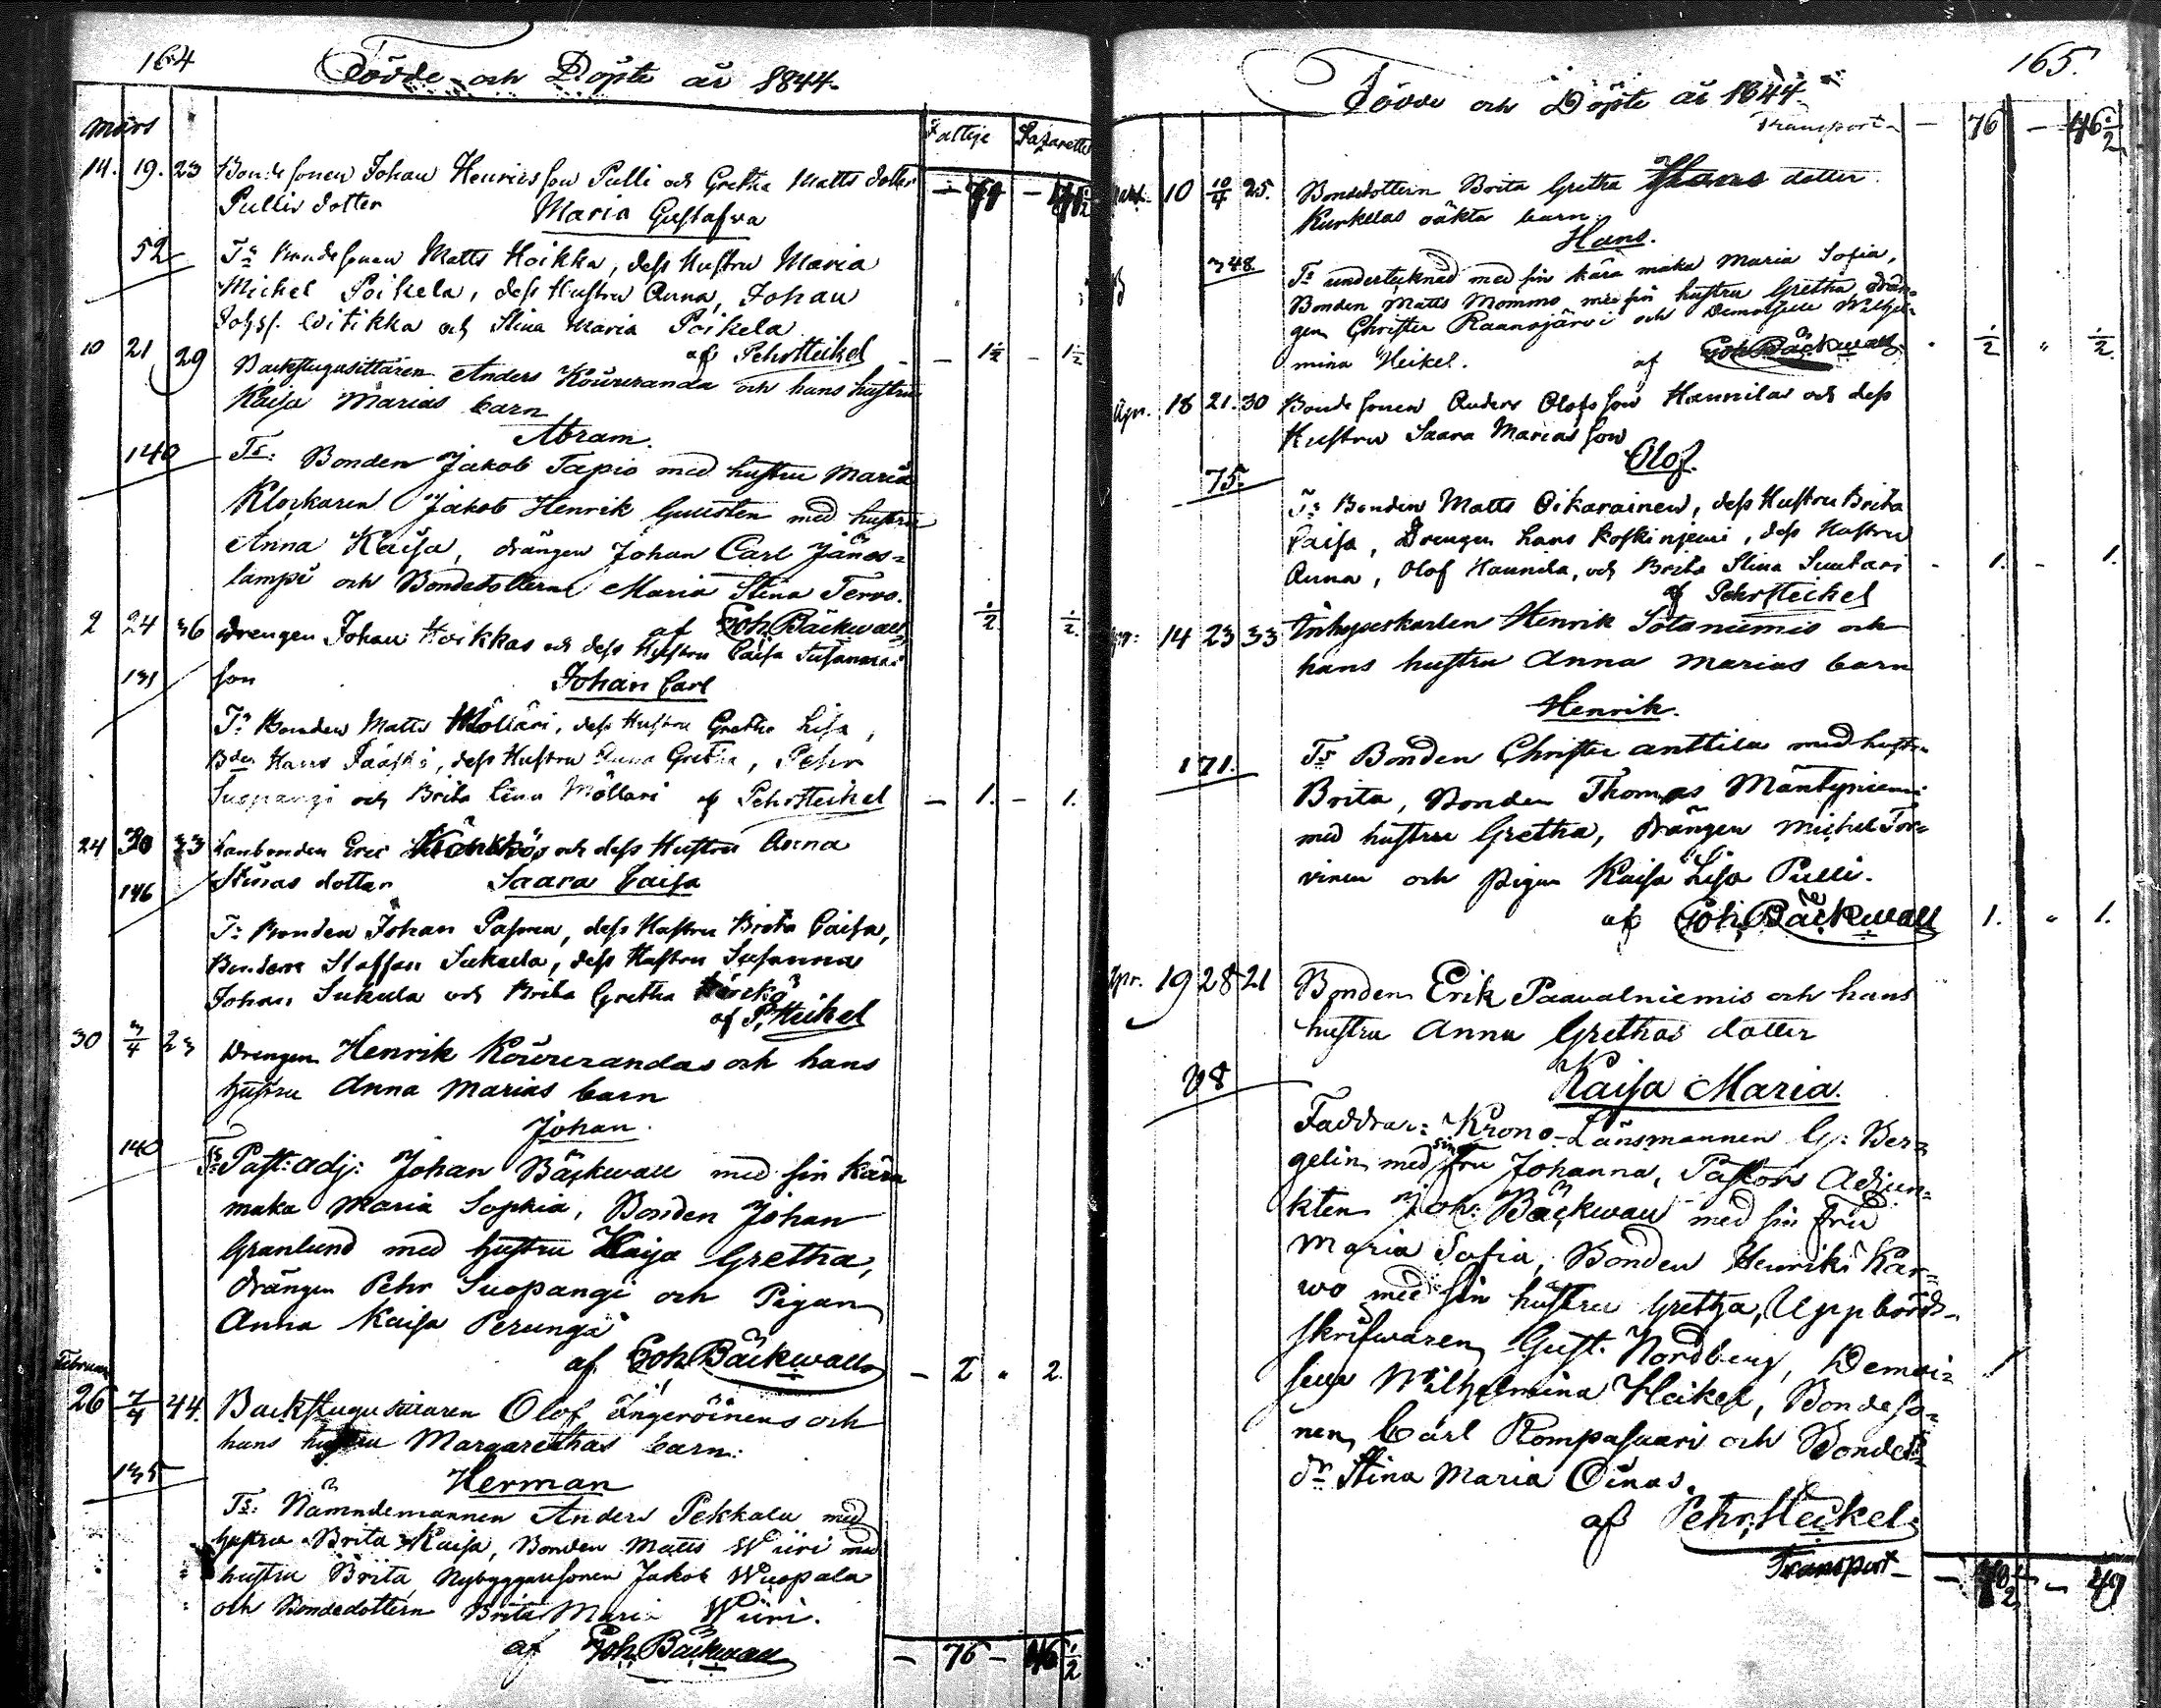 164
Födde och Döpte år 1844.
Mars
Fattige Lazarette
14. 19. 23 Bondesonen Johan Henricsson Pulli och Gretha Matts dotter
Pullis dotter Maria Gustafva
52 Ts Bondesonen Matts Hoikka, dess Hustru Maria
Michel Poikela, dess Hustru Anna, Johan
Johss. Witikka och Stina Maria Poikela
af Pehr Heikel - 1½ - 1½
10 21 29 Backstugusittaren Anders Köureranda och hans hustru
Kaisa Marias barn
Abram.
140 Ts: Bonden Jakob Tapio med hustru Maria
Klockaren Jakob Henrik Guusten med hustru
Anna Kaisa, drängen Johan Carl Jänes=
lampi och Bondedottern Maria Stina Tervo.
af Joh. Bäckwall ½ ½
2 24 36 Drengen Johan Hoikkas och dess Hustru Caisa Susannas
131 son Johan Carl
Ts Bonden Matts Möllari, dess Hustru Gretha Lisa,
Bden Hans Pääski, dess Hustru Anna Gretha, Pehr
Suopangi och Brita Lena Möllari af Pehr Heikel - 1. - 1.
24 30 33 Lanbonden Eric och dess Hustru Anna
146 Stinas dotter Saara Caisa
Ts Bonden Johan Pasma, dess Hustru Brita Caisa,
Bonden Staffan Sukula, dess Hustru Susanna
Johan Sukula och Brita Gretha
af P. Heikel
30 3/4 23 Drengen Henrik Köurerandas och hans
hustru Anna Marias barn
Johan.
140 Ts Past: adj: Johan Bäckwall med sin kära
maka Maria Sophia, Bonden Johan
Granlund med hustru Kaisa Gretha,
drängen Pehr Suopangi och Pigan
Anna Kaisa Perunga
af Joh. Bäckwall - 2 " 2.
Februari
26 7/4 44. Backstugusittaren Olof Ingeröinens och
hans hustru Margarethas barn:
135 Herman
Ts: Nämndemannen Anders Pekkala med
hustru Brita Kaisa, Bonden Matts Wiiri med
hustru Brita, Nybyggaresonen Jakob Wuopala
och Bondedottern Brita Maria Wiiri.
af Joh. Bäckwall - 76 - 46½
165.
Födde och Döpte år 1844.
Transport - 76 - 46½
10 10/4 25. Bondedottern Brita Gretha Hans dotter
Kurkelas oäkta barn
Hans.
348 Ts undertecknad med sin kära maka Maria Sofia,
Bonden Matts Mommo, med sin hustru Gretha, drän=
gen Christer Raanojärvi och Demoiselle Wilhel=
mina Heikel. af Joh. Bäckwall " ½ " ½
Apr. 18 21. 30 Bondesonen Anders Olofsson Hannilas och dess
Hustru Saara Marias son
Olof.
75. Ts Bonden Matts Oikarainen, dess Hustru Brita
Caisa, Drengen Hans Koskinjemi, dess Hustru
Anna, Olof Hannila, och Brita Stina Suutari - 1. - 1.
af Pehr Heikel
Apr: 14 23 33 Inhyseskarlen Henrik Sotaniemis och
hans hustru Anna Marias barn
Henrik.
171. Ts Bonden Christer Anttila med hustru
Brita, Bonden Thomas Mäntyniemi
med hustru Gretha, drängen Michel Tor=
vinen och pigan Kaisa Lisa Pulli.
af Joh. Bäckwall 1. " 1.
Apr. 19 28 21 Bonden Erik Paavalniemis och hans
hustru Anna Grethas dotter
38 Kaisa Maria.
Faddrar: Krono-Länsmannen G: Ber=
gelin med sin fru Johanna, Pastors Adjun=
kten Joh: Bäckwall med sin fru
Maria Sofia, Bonden Henrik Kar=
wo med sin hustru Gretha, Uppbörds-
skrifwaren Gust. Nordberg, Demoi=
selle Wilhelmina Heikel, Bondeso=
nen Carl Rompasaari och Bondedt=
dr Stina Maria Oinas.
af Pehr Heikel
Transport - - 49